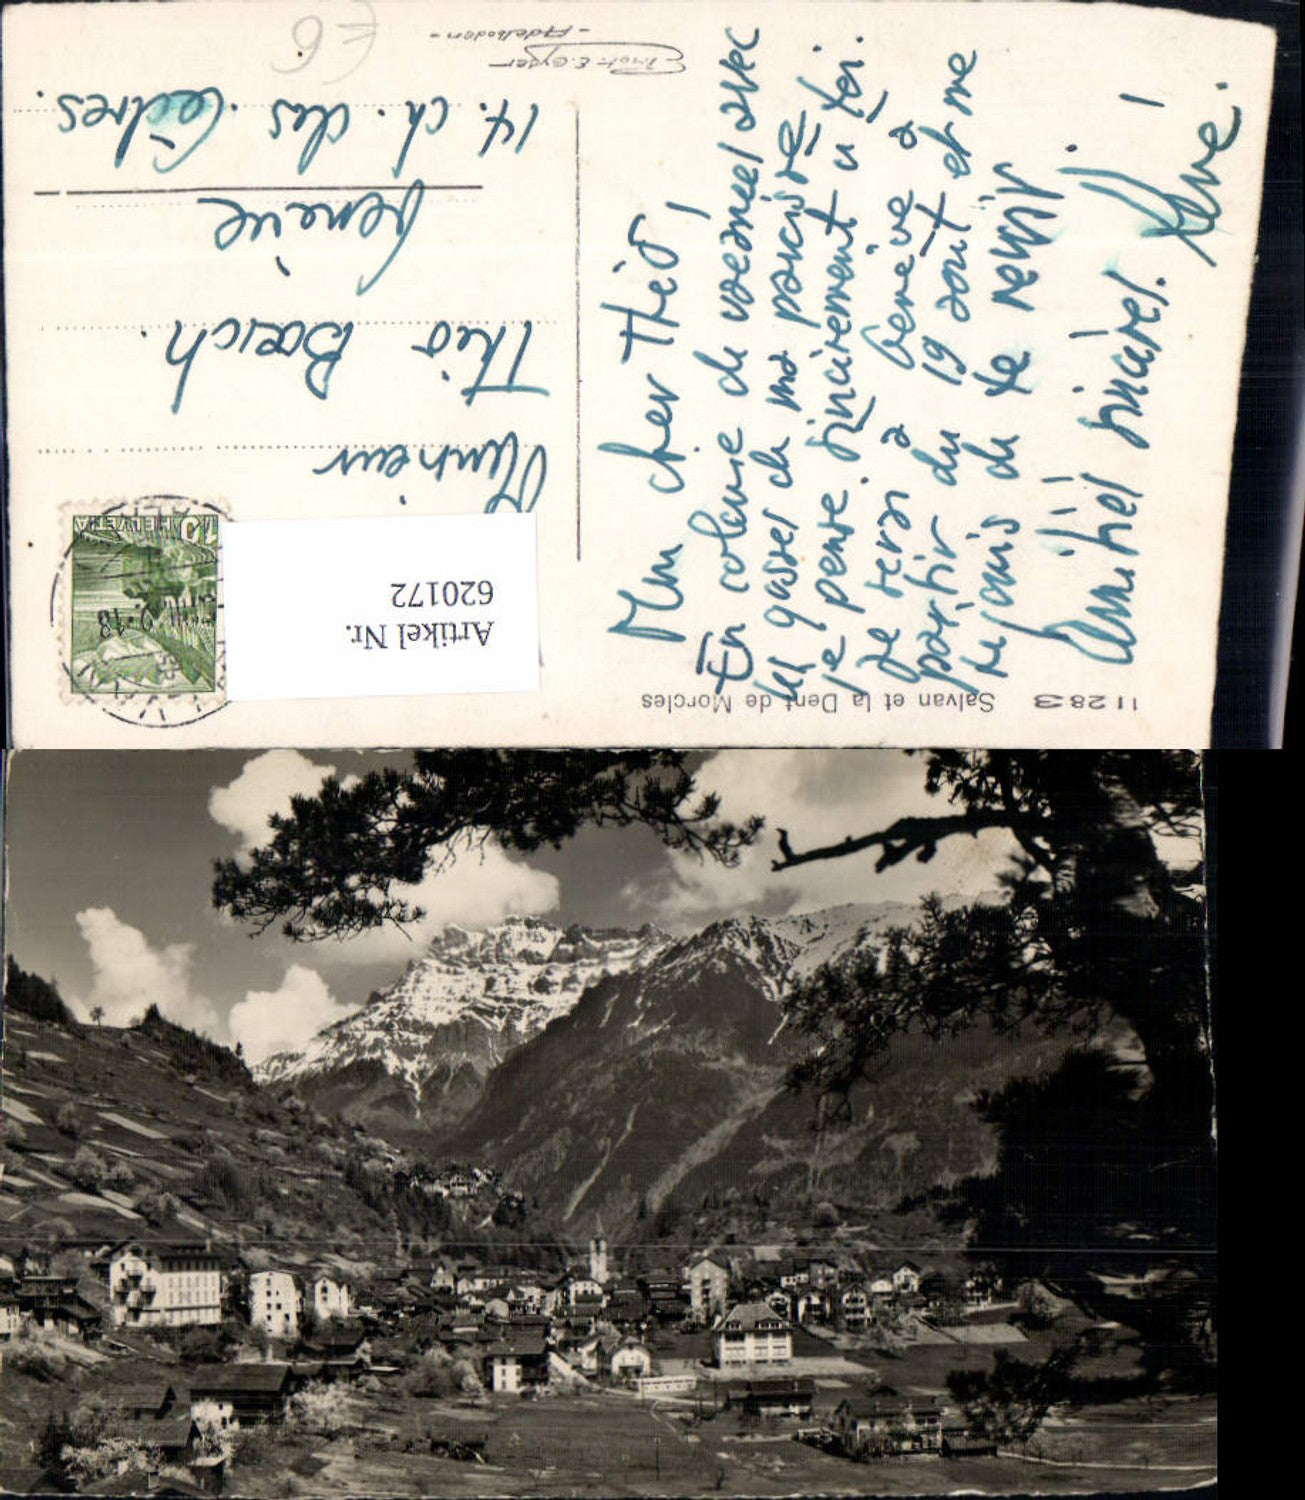 11283 Salvan et la Dent de Morcles
Mon cher Théo,
En colonie de vacances avec
les gosses de ma paroisse
je pense sincèrement à toi.
Je serai à Genève à
partir du 19 août et me
réjouis de te revoir.
Amitiés sincères.
Phot. E. Gyger
- Adelboden -
HELVETIA
10
Artikel Nr.
620172
Monsieur
Théo
Genève
14. ch. des Cèdres.
E6